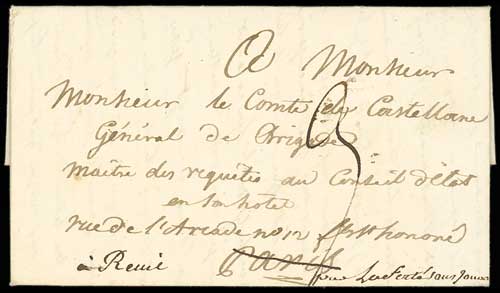 A Monsieur
Monsieur le Comte de Castellane
Général de Brigade
maitre des requêtes au Conseil d'état
en son hotel
rue de l'Arcade no 12 fbg St honoré
à Reuil Paris par La Ferté sous Jouarre